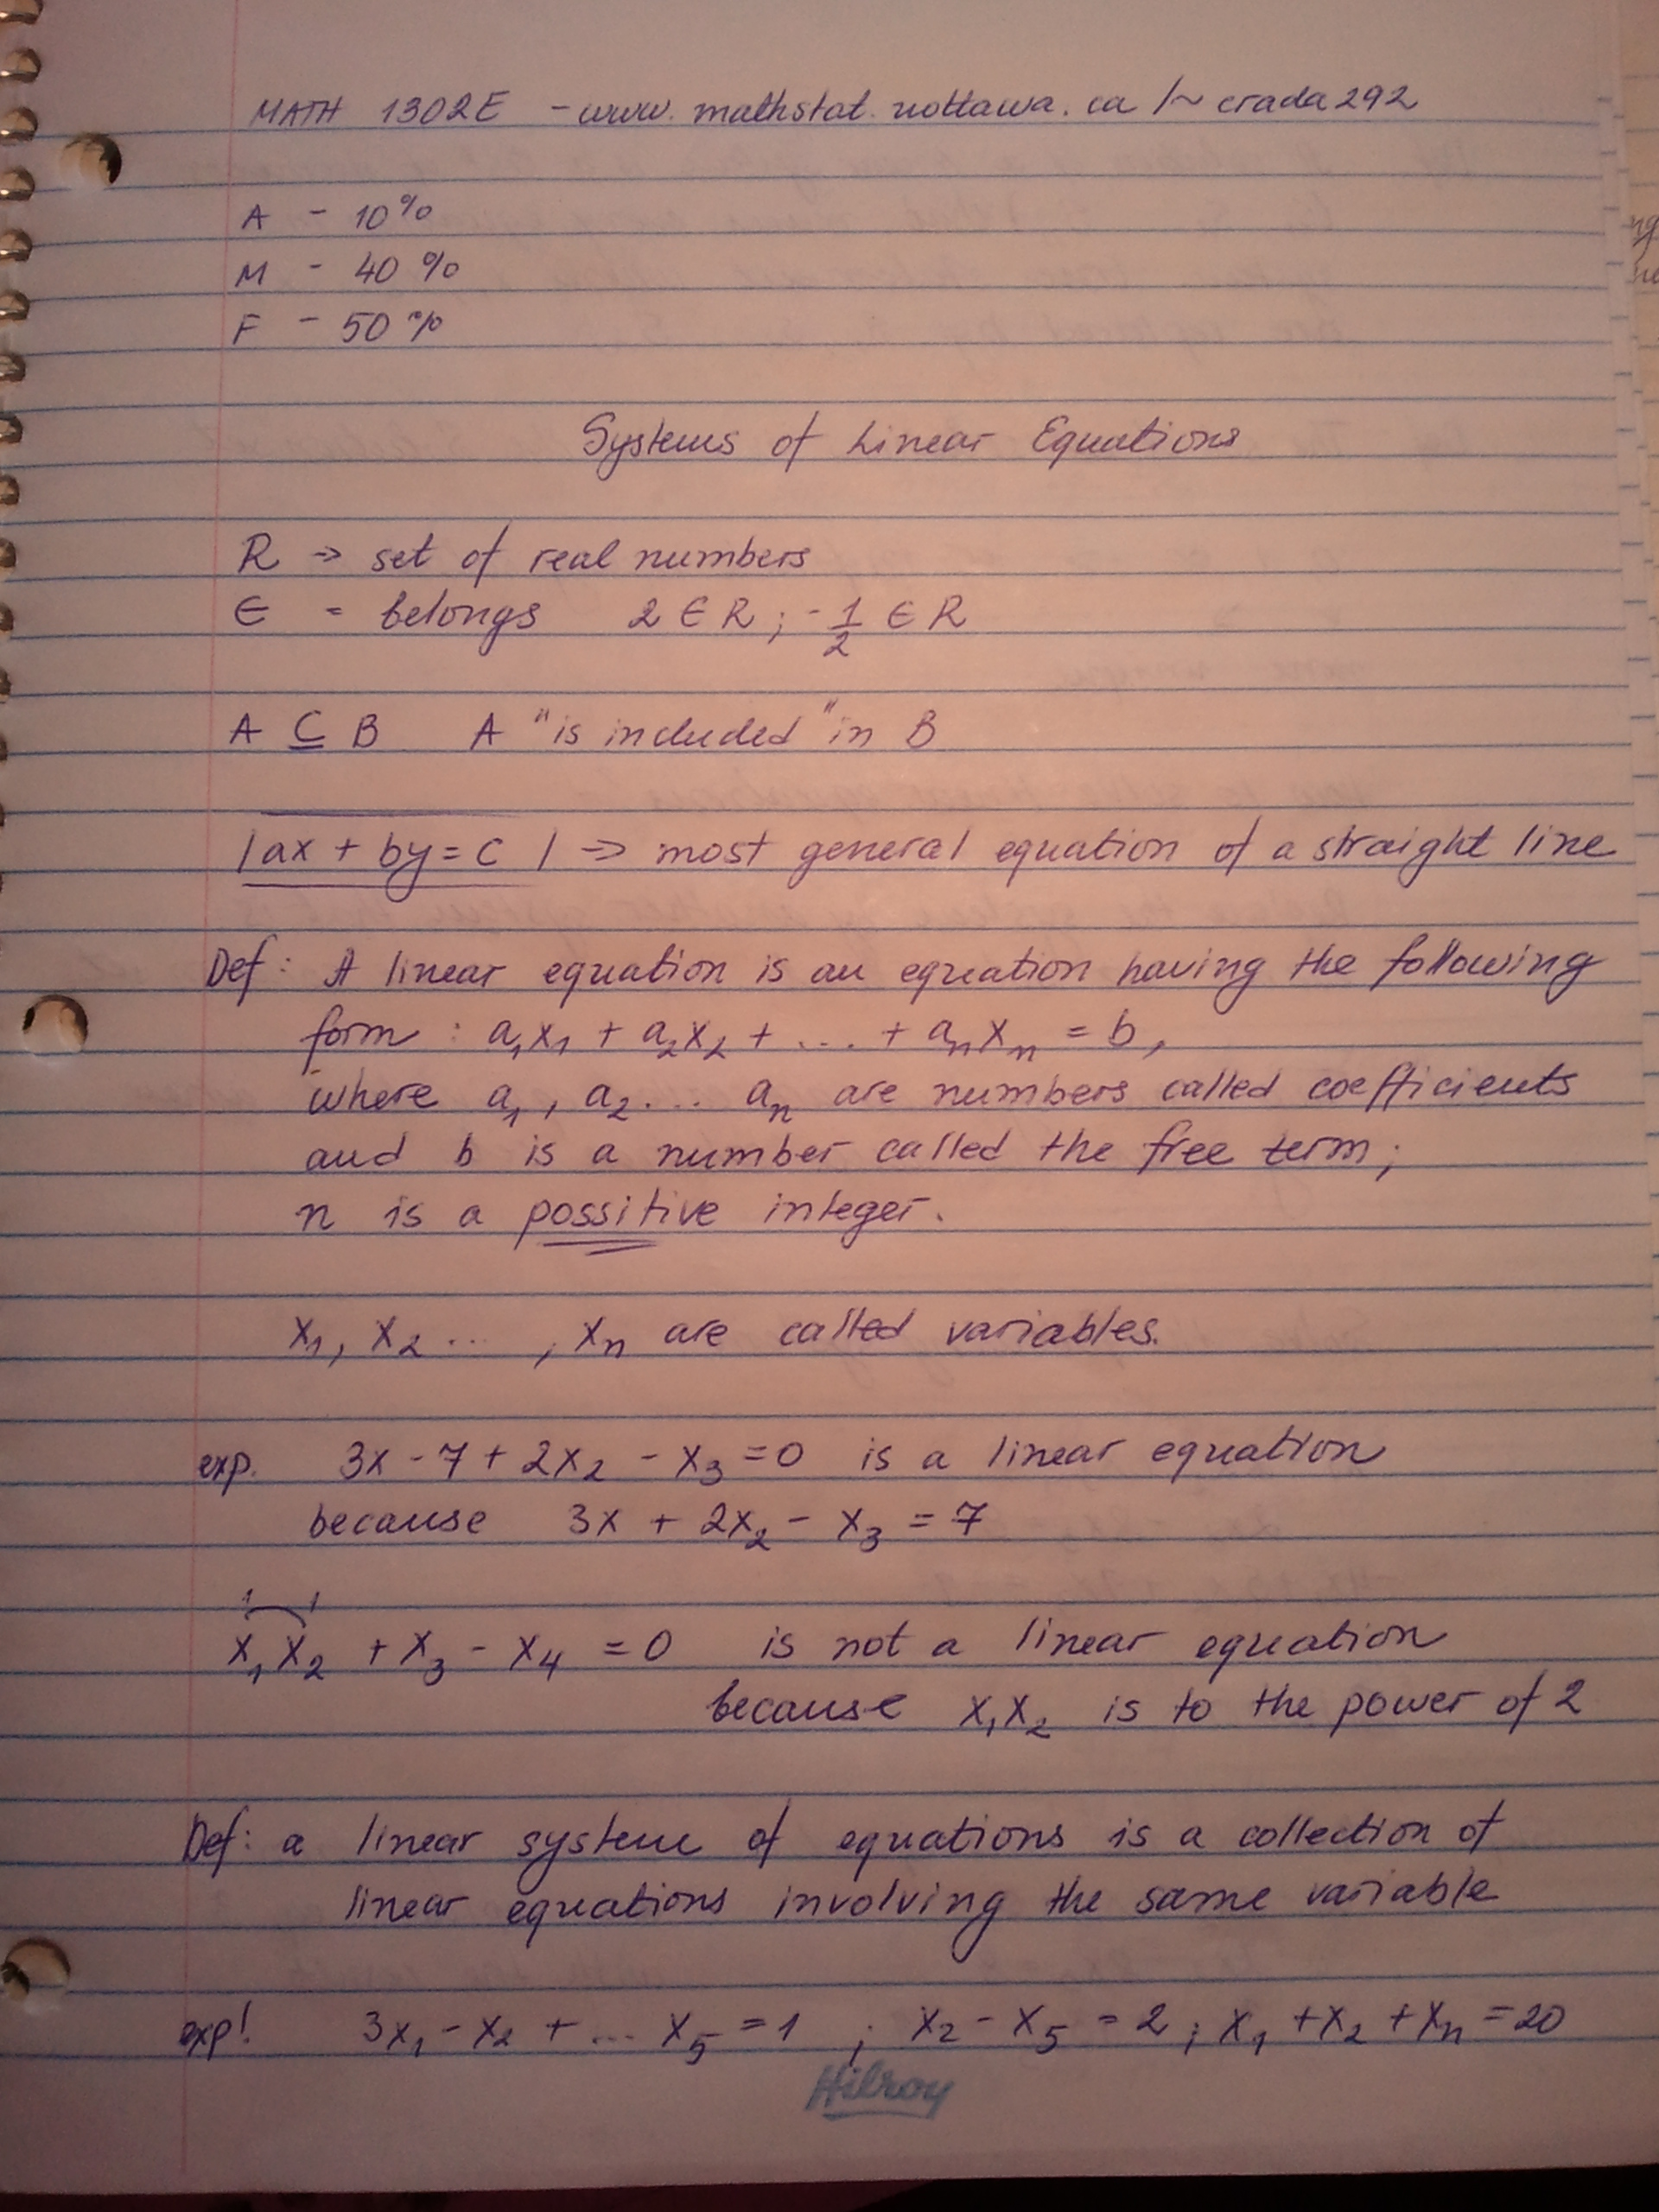 MATH 1302E - www. mathstat. uottawa. ca /~ crada292
A - 10%
M - 40%
F - 50%
Systems of Linear Equations
R → set of real numbers
∈ = belongs 2 ∈ R ; -1/2 ∈ R
A ⊆ B A "is included" in B
|ax + by = c| → most general equation of a straight line
Def: A linear equation is an equation having the following
form : a₁x₁ + a₂x₂ + .... + aₙxₙ = b,
where a₁, a₂... aₙ are numbers called coefficients
and b is a number called the free term;
n is a possitive integer.
x₁, x₂ ... , xₙ are called variables.
exp. 3x - 7 + 2x₂ - x₃ = 0 is a linear equation
because 3x + 2x₂ - x₃ = 7
1 1
x₁x₂ + x₃ - x₄ = 0 is not a linear equation
because x₁x₂ is to the power of 2
Def: a linear system of equations is a collection of
linear equations involving the same variable
exp! 3x₁ - x₂ + ... x₅ = 1 ; x₂ - x₅ = 2 ; x₁ + x₂ + xₙ = 20
Hilroy